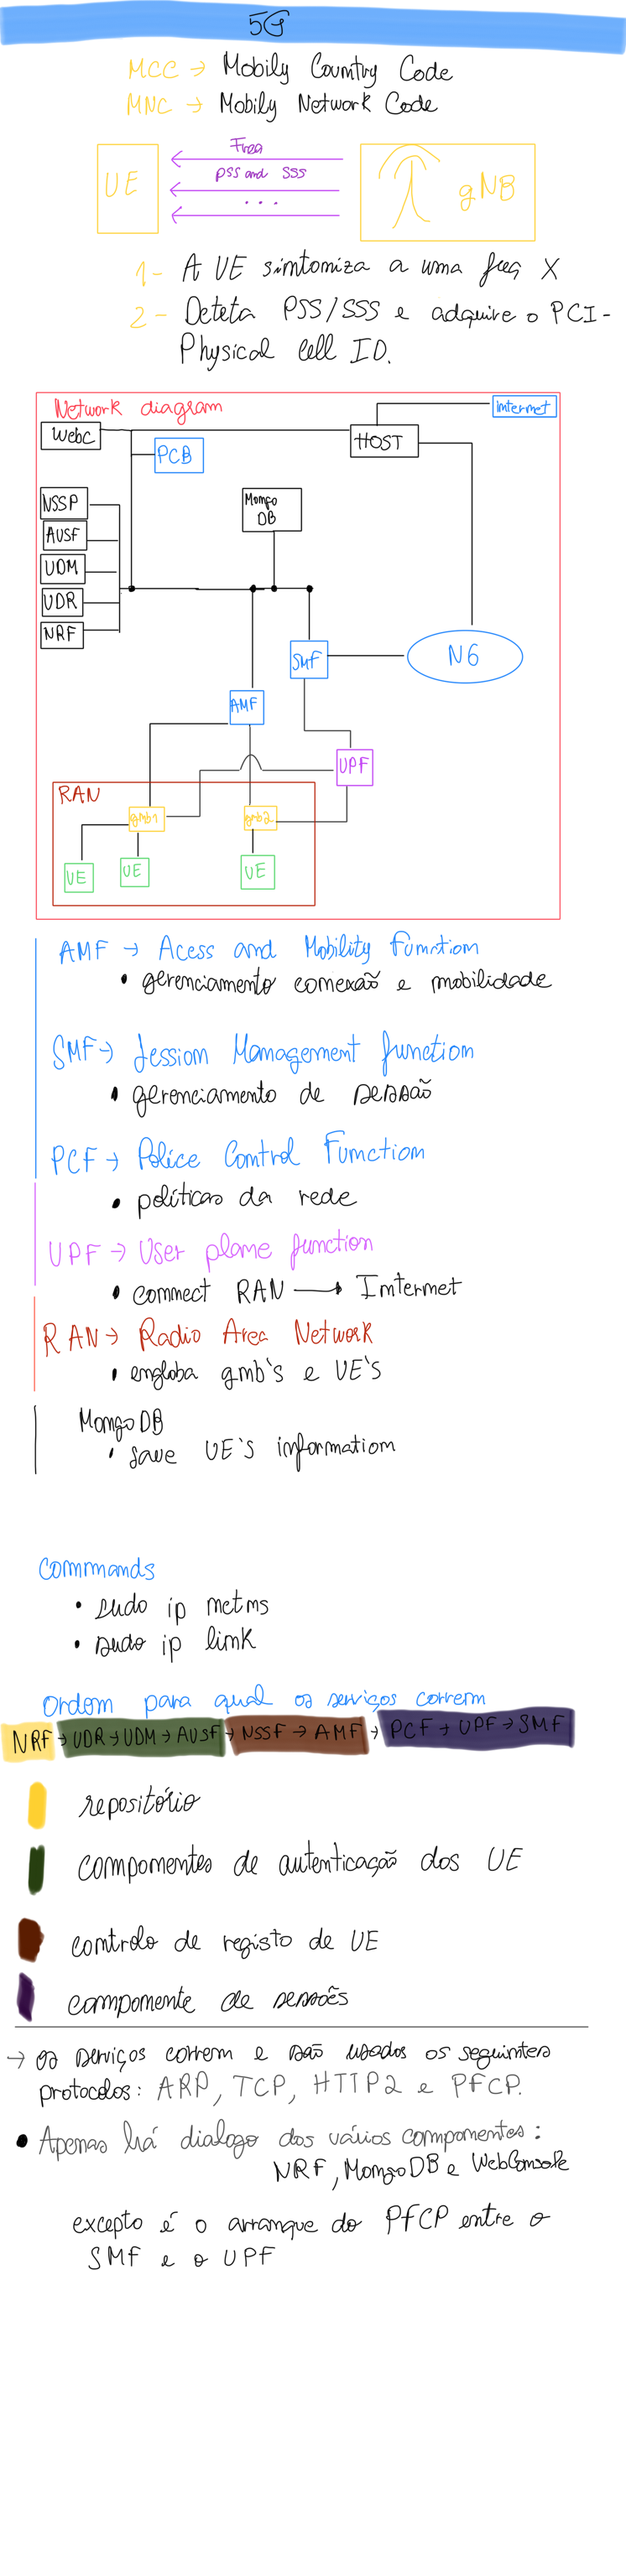 5G
MCC → Mobily Country Code
MNC → Mobily Network Code
UE
Freq
PSS and SSS
...
gNB
1- A UE sintomiza a uma freq X
2- Deteta PSS/SSS e adquire o PCI-
Physical Cell ID.
Network diagram
Internet
WebC
HOST
PCB
NSSP
Mongo
DB
AUSF
UDM
UDR
NRF
SMF
N6
AMF
UPF
RAN
gmb1
gmb2
UE
UE
UE
AMF → Acess and Mobility Function
• gerenciamento conexão e mobilidade
SMF → Session Management function
• gerenciamento de sessão
PCF → Police Control Function
• políticas da rede
UPF → User plane function
• connect RAN → Internet
RAN → Radio Area Network
• engloba gmb's e UE's
MongoDB
• save UE's information
Commands
• sudo ip netns
• sudo ip link
Ordem para qual os serviços correm
NRF → UDR → UDM → AUSF → NSSF → AMF → PCF → UPF → SMF
repositório
componentes de autenticação dos UE
controlo de registo de UE
componente de sessões
→ os serviços correm e são usados os seguintes
protocolos: ARP, TCP, HTTP2 e PFCP.
• Apenas há dialogo dos vários componentes:
NRF, MongoDB e WebConsole
excepto é o arranque do PFCP entre o
SMF e o UPF